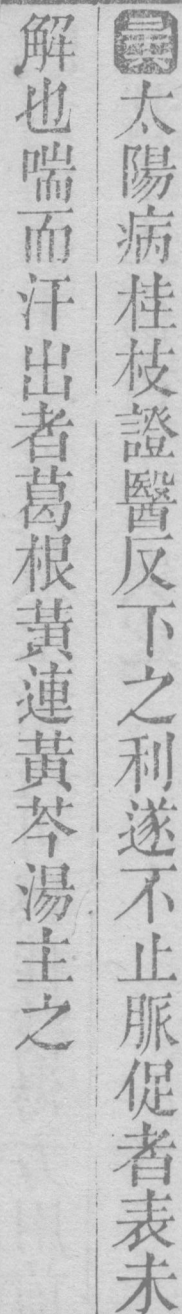 太陽病桂枝證醫反下之利遂不止脈促者表未
解也喘而汗出者葛根黃連黃芩湯主之